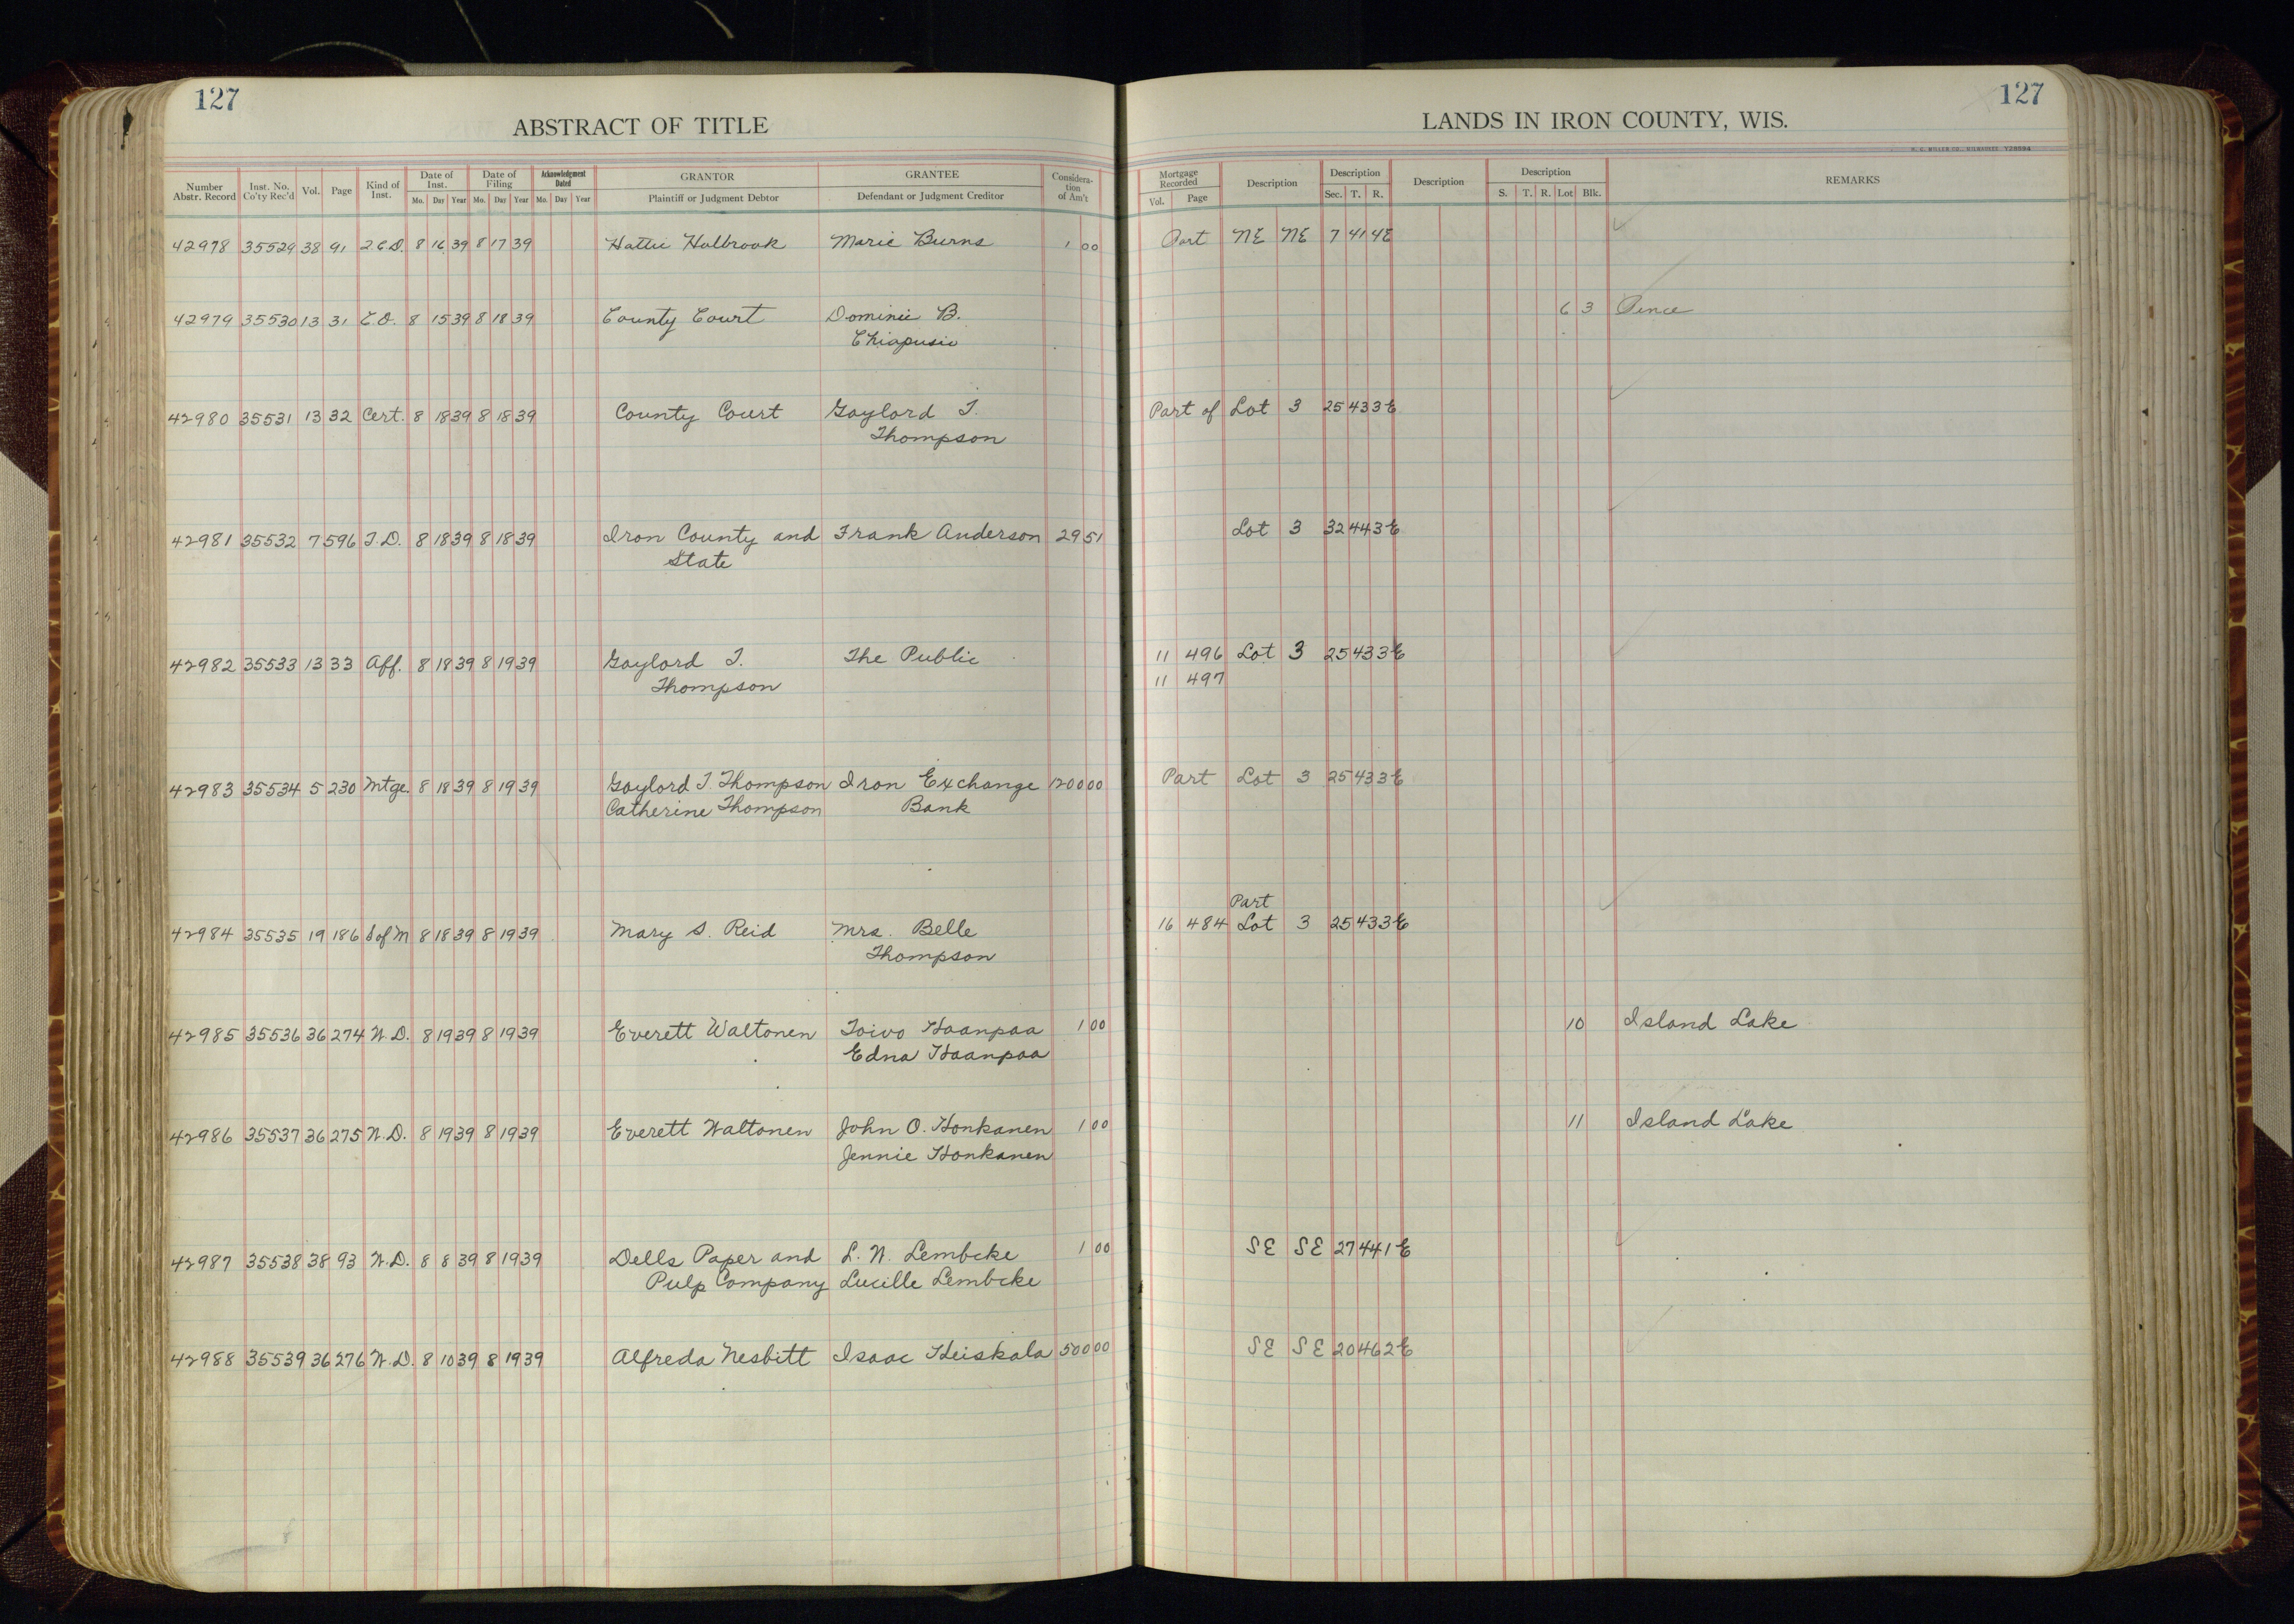 127
127
ABSTRACT OF TITLE
LANDS IN IRON COUNTY, WIS.
H. C. MILLER CO., MILWAUKEE
Number Abstr. Record Inst. No. Co'ty Rec'd Vol. Page Kind of Inst. Date of Inst. Mo. Day Year Date of Filing Mo. Day Year Acknowledgment Dated Mo. Day Year GRANTOR Plaintiff or Judgment Debtor GRANTEE Defendant or Judgment Creditor Consideration of Am't Mortgage Recorded Vol. Page Description Description Sec. T. R. Description Description S. T. R. Lot Blk. REMARKS
42978 35529 38 91 2.C.D. 8 16 39 8 17 39 Hattie Holbrook Marie Burns 1 00 Part NE NE 7 41 4E
42979 35530 13 31 8 15 39 8 18 39 County Court Dominic B. 6 3 Pence
Chiapusio
42980 35531 13 32 Cert. 8 18 39 8 18 39 County Court Gaylord T. Part of Lot 3 25 43 3E
Thompson
42981 35532 7 596 T.D. 8 18 39 8 18 39 Iron County and Frank Anderson 29 51 Lot 3 32 44 3E
State
42982 35533 13 33 Aff. 8 18 39 8 19 39 Gaylord T. The Public 11 496 Lot 3 25 43 3E
Thompson 11 497
42983 35534 5 230 Mtge. 8 18 39 8 19 39 Gaylord T. Thompson Iron Exchange 1200 00 Part Lot 3 25 43 3E
Catherine Thompson Bank
Part
42984 35535 19 186 S of M 8 18 39 8 19 39 Mary S. Reid Mrs. Belle 16 484 Lot 3 25 43 3E
Thompson
42985 35536 36 274 W.D. 8 19 39 8 19 39 Everett Waltonen Toivo Haanpaa 1 00 10 Island Lake
Edna Haanpaa
42986 35537 36 275 W.D. 8 19 39 8 19 39 Everett Waltonen John O. Honkanen 1 00 11 Island Lake
Jennie Honkanen
42987 35538 38 93 W.D. 8 8 39 8 19 39 Dells Paper and L. W. Lembcke 1 00 SE SE 27 44 1E
Pulp Company Lucille Lembcke
42988 35539 36 276 W.D. 8 10 39 8 19 39 Alfreda Nesbitt Isaac Heiskala 500 00 SE SE 20 46 2E